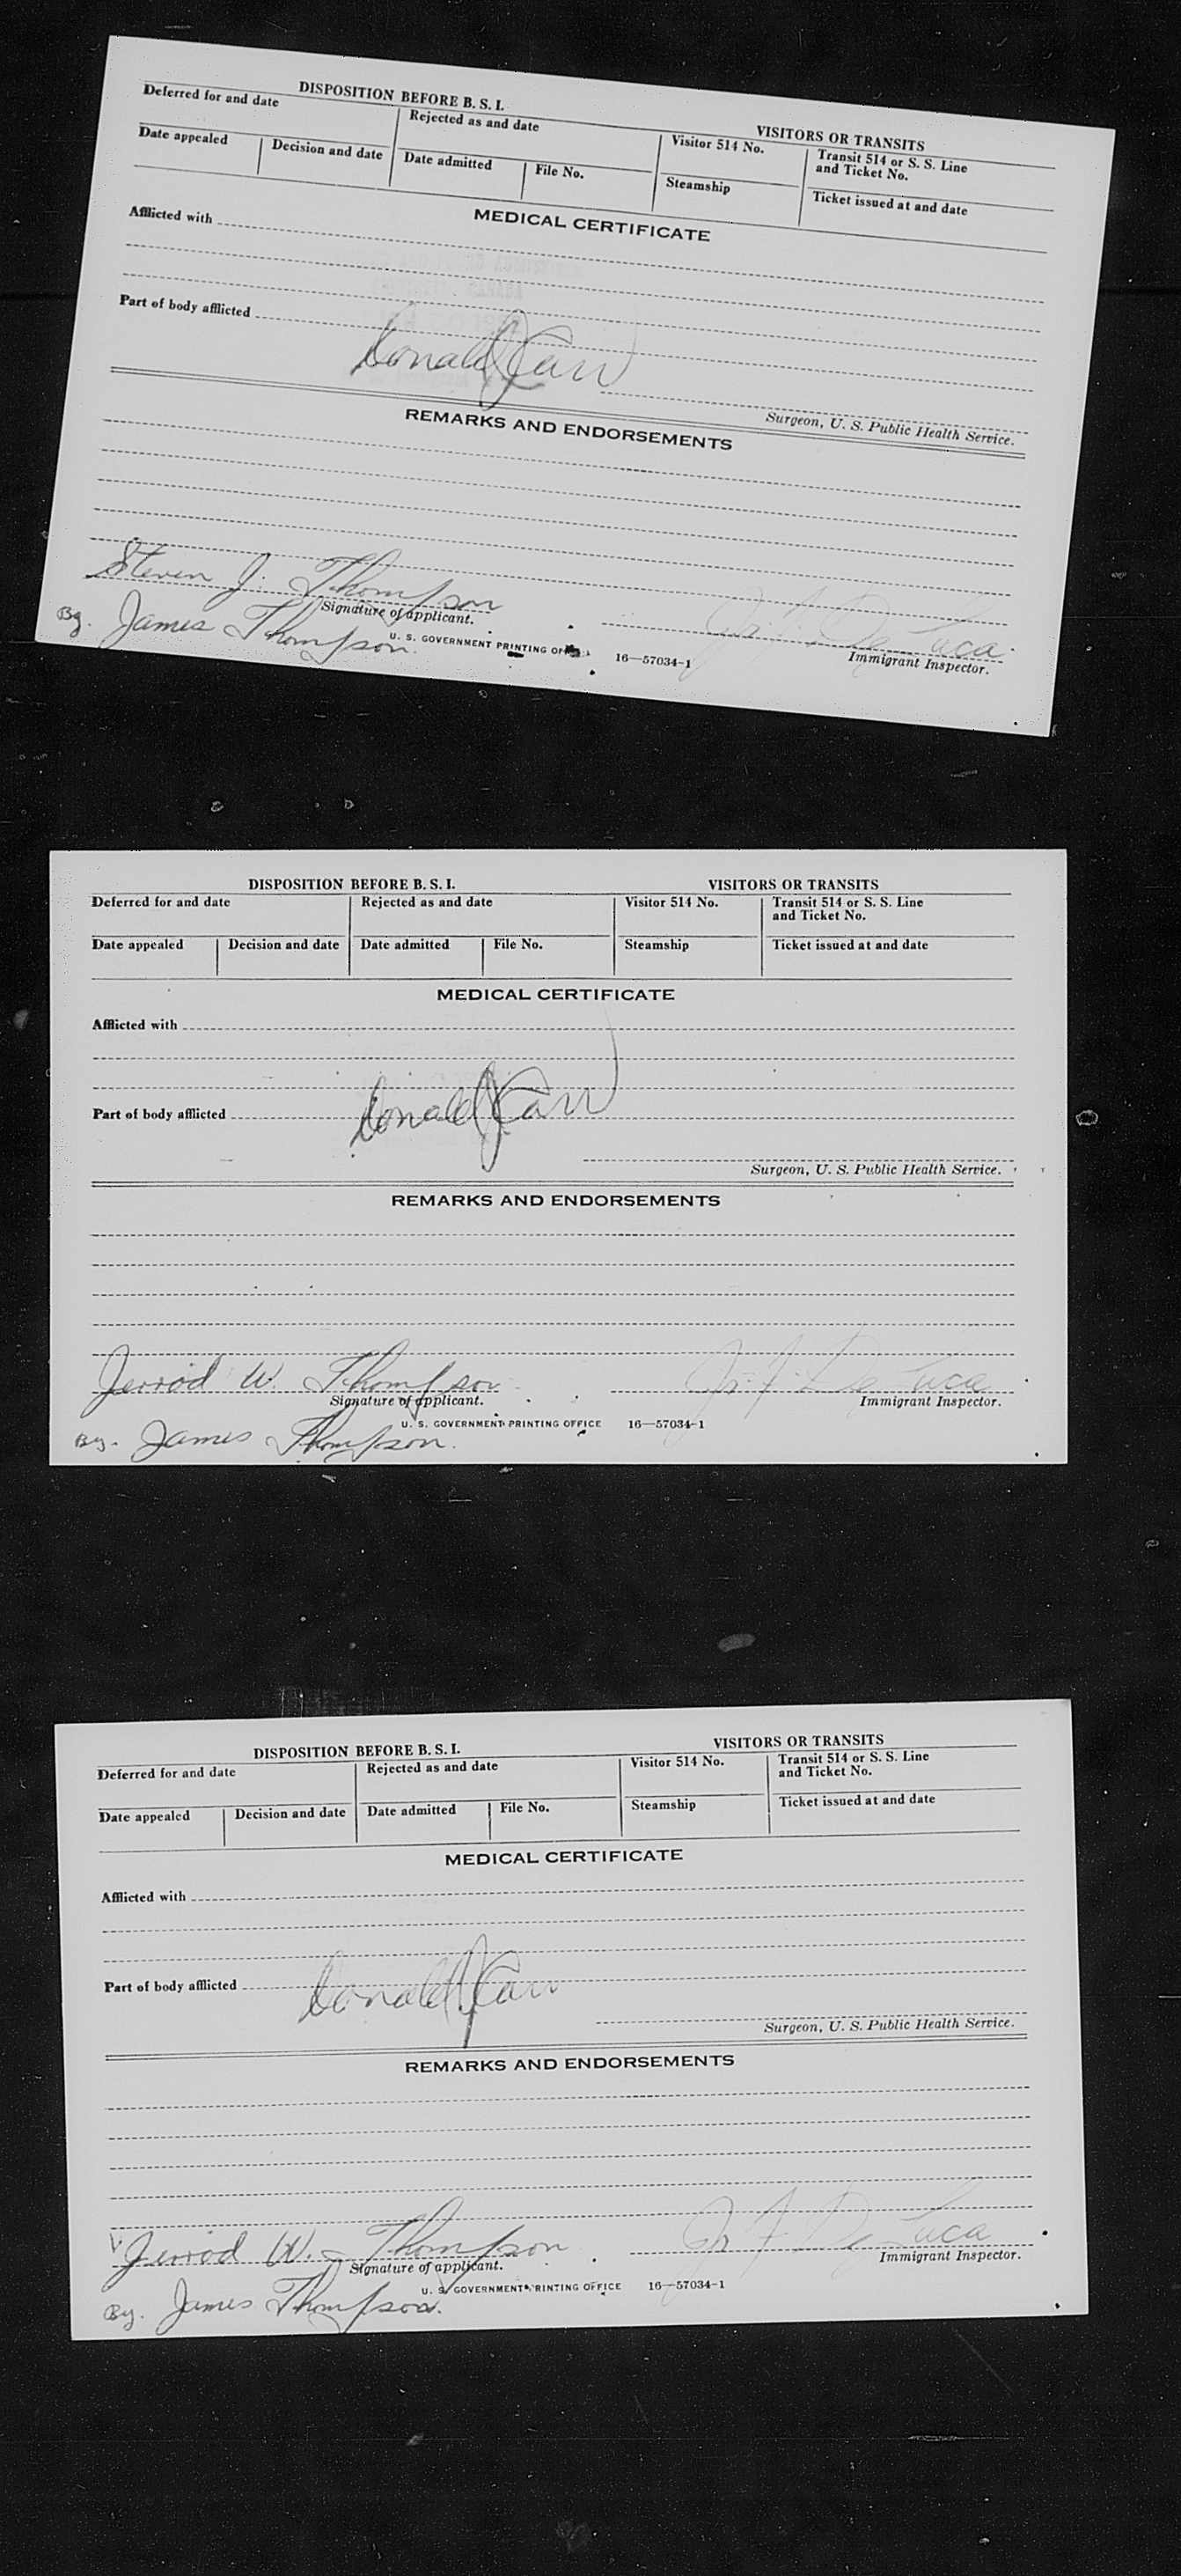 DISPOSITION BEFORE B. S. I.
VISITORS OR TRANSITS
Deferred for and date
Rejected as and date
Visitor 514 No.
Transit 514 or S. S. Line
and Ticket No.
Date appealed
Decision and date
Date admitted
File No.
Steamship
Ticket issued at and date
MEDICAL CERTIFICATE
Afflicted with
Part of body afflicted
Donald J Carr
Surgeon, U. S. Public Health Service.
REMARKS AND ENDORSEMENTS
Steven J. Thompson
De Luca
Signature of applicant.
Immigrant Inspector.
By. James Thompson.
U. S. GOVERNMENT PRINTING 16—57034-1
DISPOSITION BEFORE B. S. I.
VISITORS OR TRANSITS
Deferred for and date
Rejected as and date
Visitor 514 No.
Transit 514 or S. S. Line
and Ticket No.
Date appealed
Decision and date
Date admitted
File No.
Steamship
Ticket issued at and date
MEDICAL CERTIFICATE
Afflicted with
Part of body afflicted
Donald J Carr
Surgeon, U. S. Public Health Service.
REMARKS AND ENDORSEMENTS
Jerrod W. Thompson
De Luca
Signature of applicant.
Immigrant Inspector.
U. S. GOVERNMENT PRINTING OFFICE 16—57034-1
By. James Thompson.
DISPOSITION BEFORE B. S. I.
VISITORS OR TRANSITS
Deferred for and date
Rejected as and date
Visitor 514 No.
Transit 514 or S. S. Line
and Ticket No.
Date appealed
Decision and date
Date admitted
File No.
Steamship
Ticket issued at and date
MEDICAL CERTIFICATE
Afflicted with
Part of body afflicted
Donald J Carr
Surgeon, U. S. Public Health Service.
REMARKS AND ENDORSEMENTS
Jerrod W. Thompson
De Luca
Signature of applicant.
Immigrant Inspector.
U. S. GOVERNMENT PRINTING OFFICE 16—57034-1
By. James Thompson.